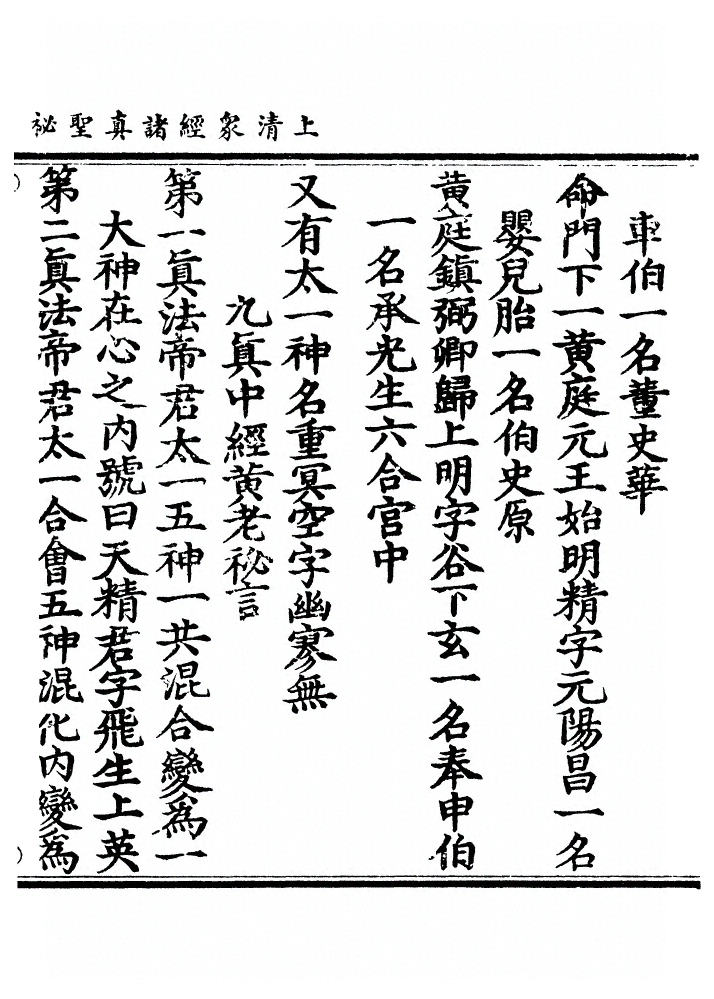 上清眾經諸真聖祕
車伯一名董史華
命門下一黄庭元王始明精字元陽昌一名
嬰兒胎一名伯史原
黄庭鎮弼卿歸上明字谷下玄一名奉申伯
一名承光生六合宮中
又有太一神名重冥空字幽寥無
九眞中經黄老秘言
第一眞法帝君太一五神一共混合變為一
大神在心之内號曰天精君字飛生上英
第二眞法帝君太一合會五神混化内變為